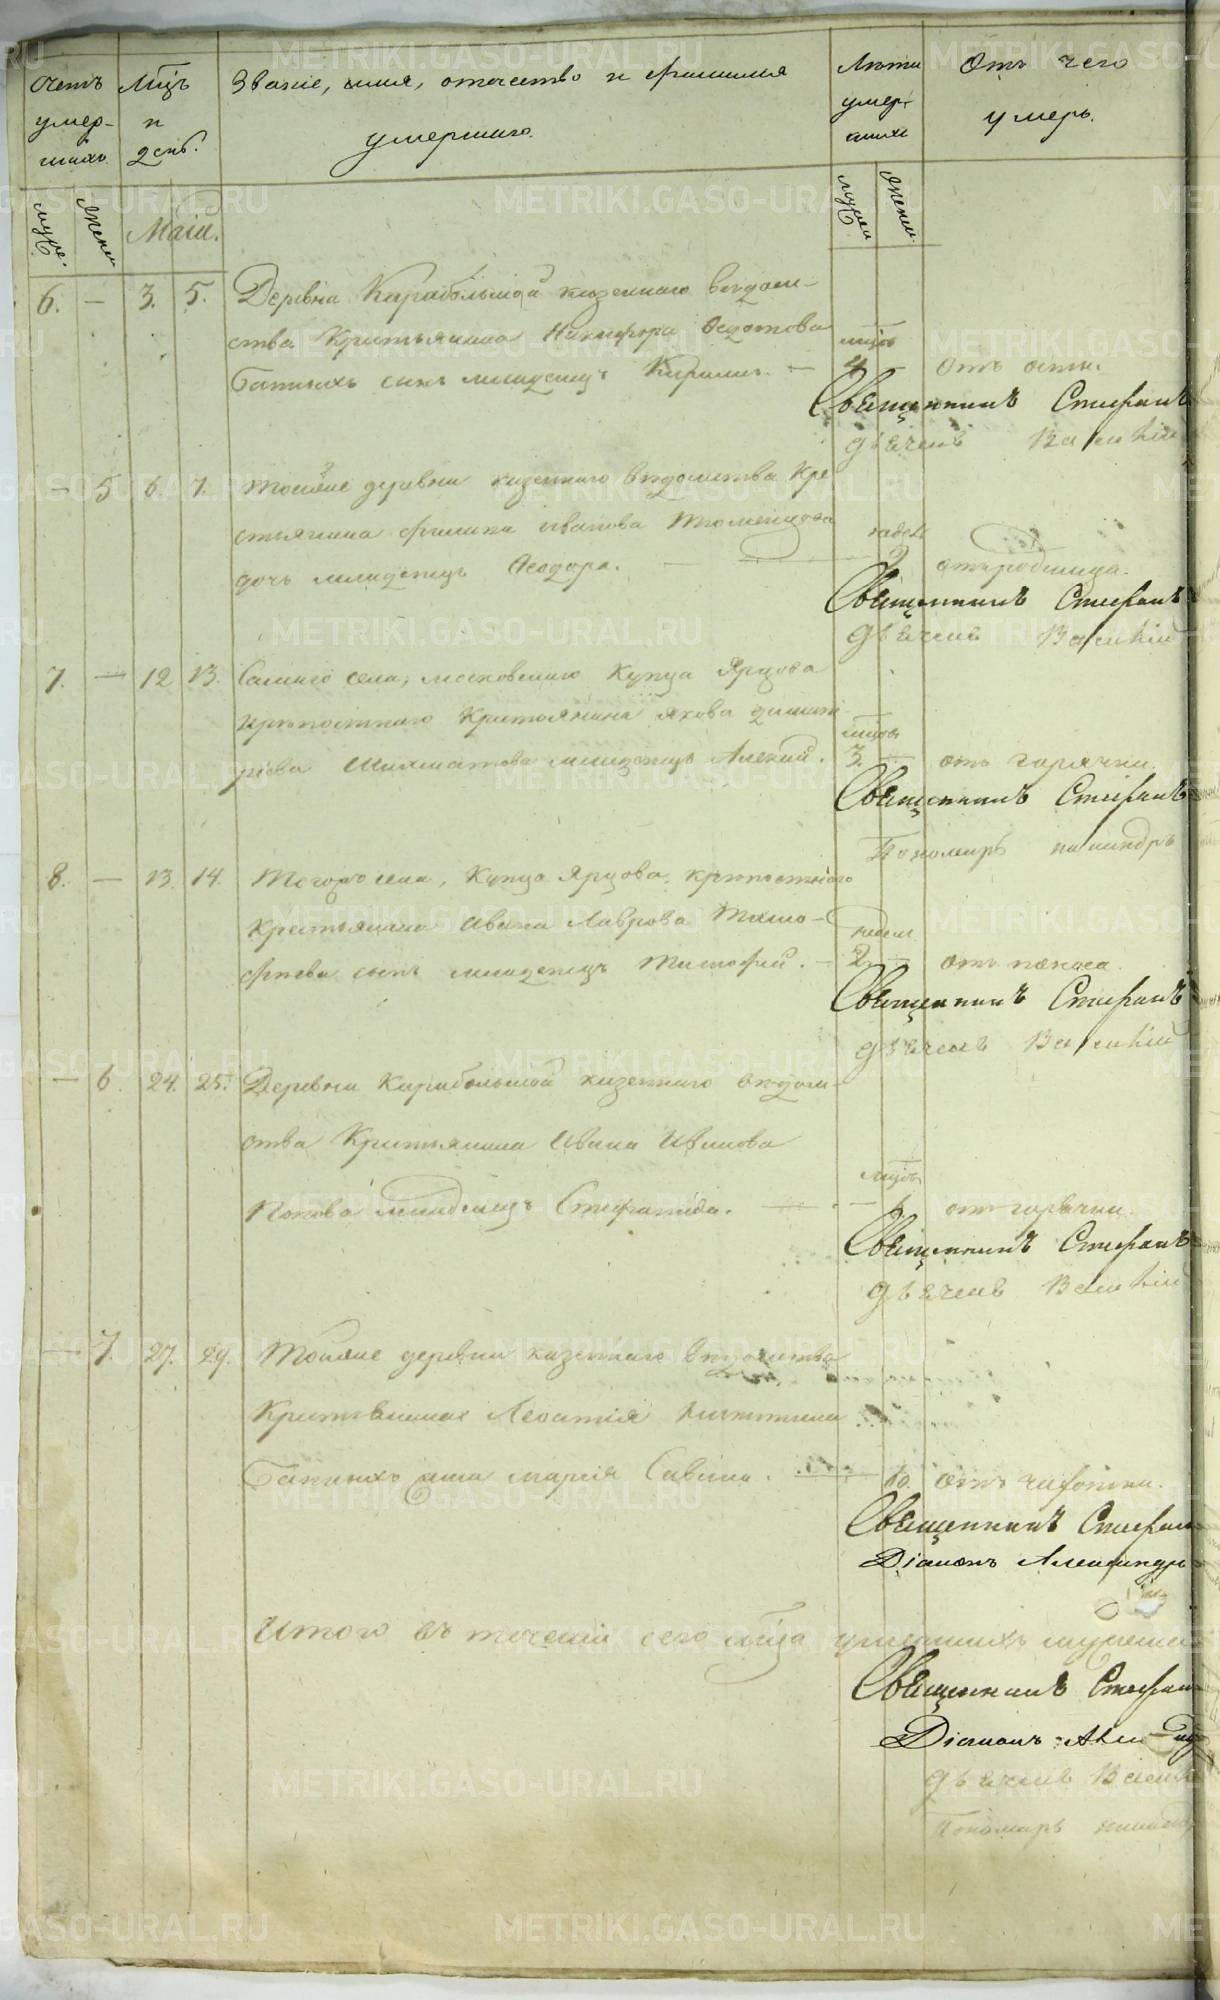 Счетъ умер-шихъ
Мцъ и день.
Званіе, имя, отечество и фамилія
умершаго.
Лѣта умер-шихъ
Отъ чего
умеръ.
муже.
жен
Маій.
мужеи
женеи
6. — 3. 5. Деревни Карабольшой казеннаго вѣдом-
ства Крестьянина Никифора Федотова
Банныхъ сынъ младенецъ Кириллъ. —
мцов
4 — отъ оспы.
Священникъ Стефанъ
Дьячекъ Василій
— 5 6. 7. Тойже деревни казеннаго вѣдомства Кре
стьянина Филипа Иванова Тюменцова
дочь младенецъ Феодора. —
недел
2 отъ родимца.
Священникъ Стефанъ
Дьячекъ Василій
7. — 12 13. Самаго села, московскаго Купца Ярцова
крѣпостнаго Крестьянина Якова Димит
ріева Шихматова младенецъ Алексій.
мцов
3. — отъ горячки.
Священникъ Стефанъ
Пономарь
8. — 13. 14. Тогожъ села, Купца Ярцова, крѣпостнаго
Крестьянина Ивана Лаврова Тимо-
фѣева сынъ младенецъ Тимофей. —
недел
2. — отъ поноса.
Священникъ Стефанъ
Дьячекъ Василій
— 6. 24. 25. Деревни Карабольшой казеннаго вѣдом-
ства Крестьянина Ивана Иванова
Попова младенецъ Стефанида. —
мцов
отъ горячки.
Священникъ Стефанъ
Дьячекъ Василій
— 7. 27. 29. Тойже деревни казеннаго вѣдомства
Крестьянина Леонтія Никитина
Банныхъ жена Марія Савина.
60. отъ чахотки.
Священникъ Стефан
Діаконъ Александръ
Итого въ теченіи сего мца умершихъ мужеска
Священникъ Стефан
Діаконъ Алек
Дьячекъ Васил
Пономарь
METRIKI.GASO-URAL.RU